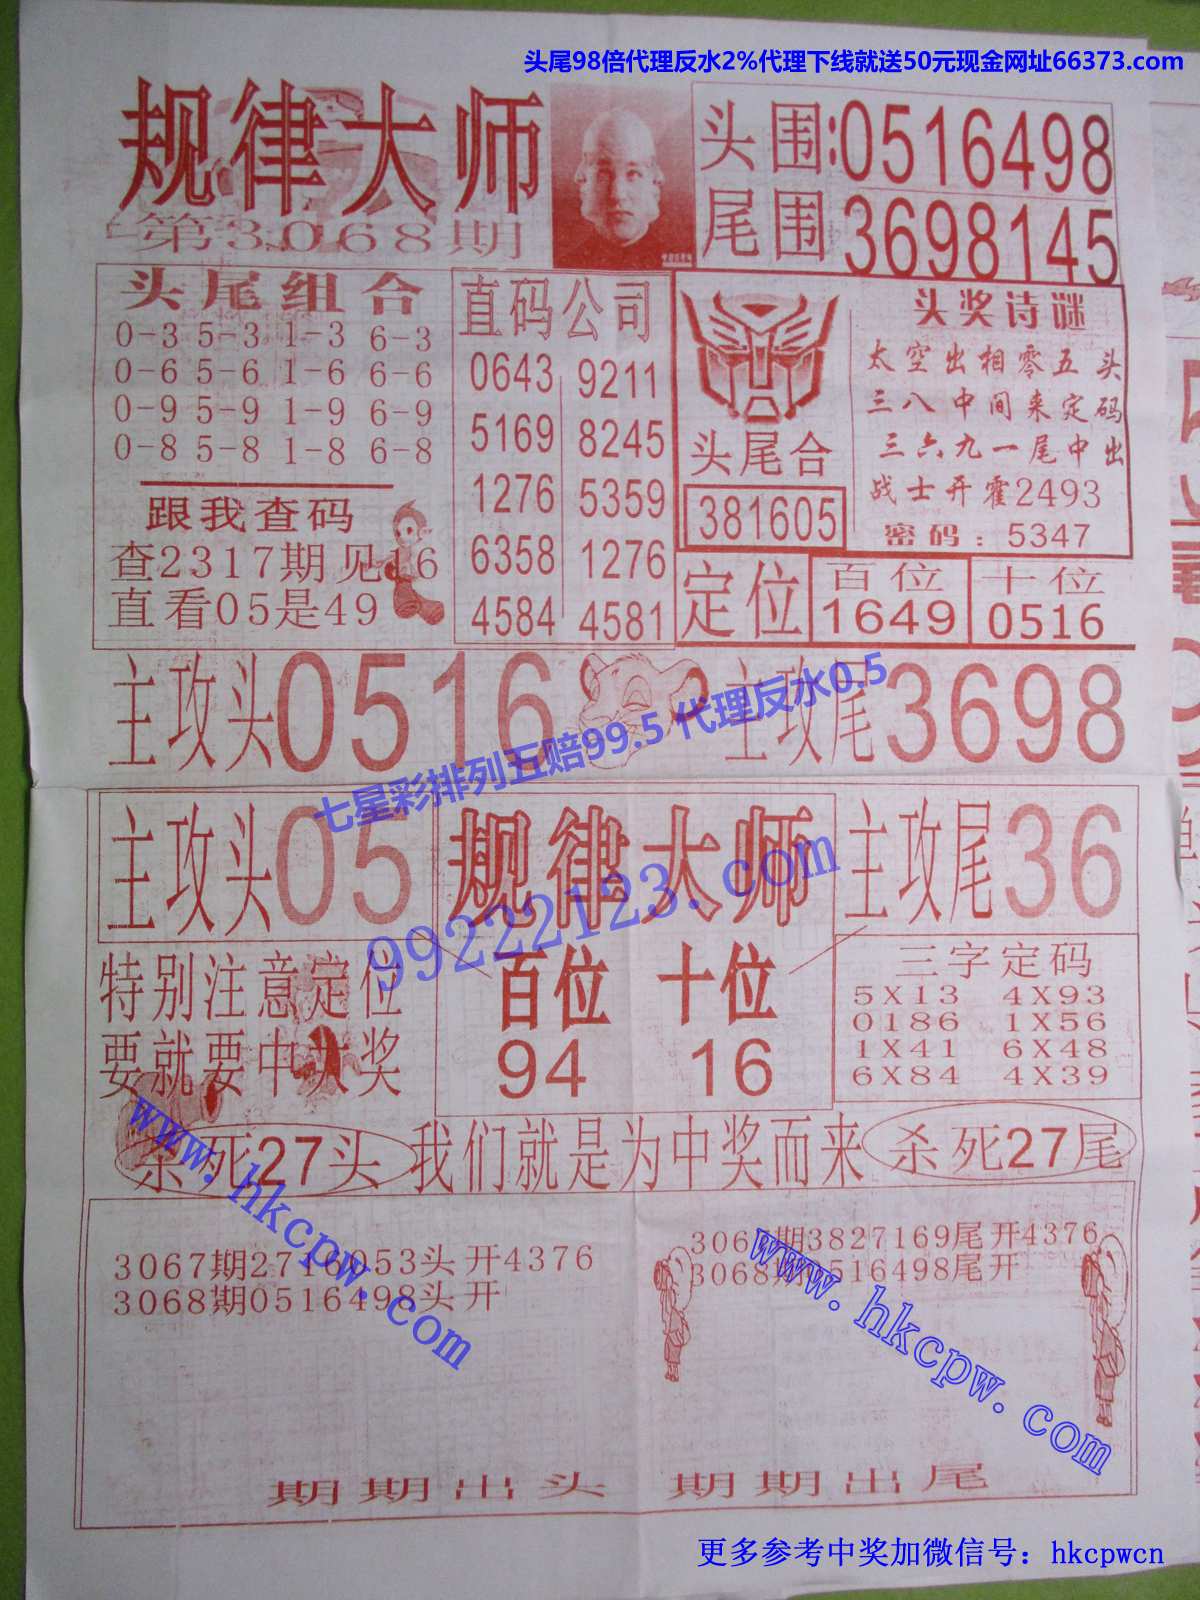 头尾98倍代理反水2%代理下线就送50元现金网址66373.com
规律大师
第3068期
头围:0516498
尾围3698145
头尾组合
0-3 5-3 1-3 6-3
0-6 5-6 1-6 6-6
0-9 5-9 1-9 6-9
0-8 5-8 1-8 6-8
跟我查码
查2317期见16
直看05是49
直码公司
0643 9211
5169 8245
1276 5359
6358 1276
4584 4581
头尾合
381605
头奖诗谜
太空出相零五头
三八中间来定码
三六九一尾中出
战士开霍2493
密码：5347
定位
百位
1649
十位
0516
主攻头0516
主攻尾3698
七星彩排列五赔99.5 代理反水0.5
99222123.com
主攻头05
规律大师
主攻尾36
特别注意定位
要就要中大奖
百位 十位
94 16
三字定码
5X13 4X93
0186 1X56
1X41 6X48
6X84 4X39
杀死27头
我们就是为中奖而来
杀死27尾
www.hkcpw.com
www.hkcpw.com
3067期2716053头开4376
3068期0516498头开
3067期3827169尾开4376
3068期0516498尾开
期期出头 期期出尾
更多参考中奖加微信号：hkcpwcn